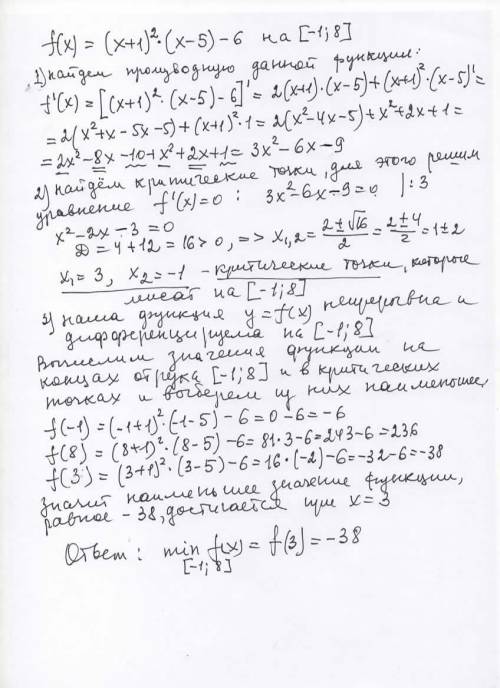 f(x) = (x+1)²·(x-5) - 6 на [-1;8]
1) найдем производную данной функции:
f'(x) = [(x+1)²·(x-5)-6]' = 2(x+1)·(x-5)+(x+1)²·(x-5)' =
= 2(x²+x-5x-5)+(x+1)²·1 = 2(x²-4x-5)+x²+2x+1 =
= 2x²-8x-10+x²+2x+1 = 3x²-6x-9
2) найдём критические точки, для этого решим
уравнение f'(x)=0 : 3x²-6x-9=0 |:3
x²-2x-3=0
D=4+12=16>0, => x₁,₂ = (2±√16)/2 = (2±4)/2 = 1±2
x₁=3, x₂=-1 - критические точки, которые
лежат на [-1;8]
3) наша функция y=f(x) непрерывна и
дифференцируема на [-1;8]
Вычислим значения функции на
концах отрезка [-1;8] и в критических
точках и выберем из них наименьшее,
f(-1) = (-1+1)²·(-1-5)-6=0-6=-6
f(8) = (8+1)²·(8-5)-6=81·3-6=243-6=236
f(3) = (3+1)²·(3-5)-6=16·(-2)-6=-32-6=-38
Значит наименьшее значение функции,
равное -38, достигается при x=3
Ответ: min f(x) = f(3) = -38
[-1;8]